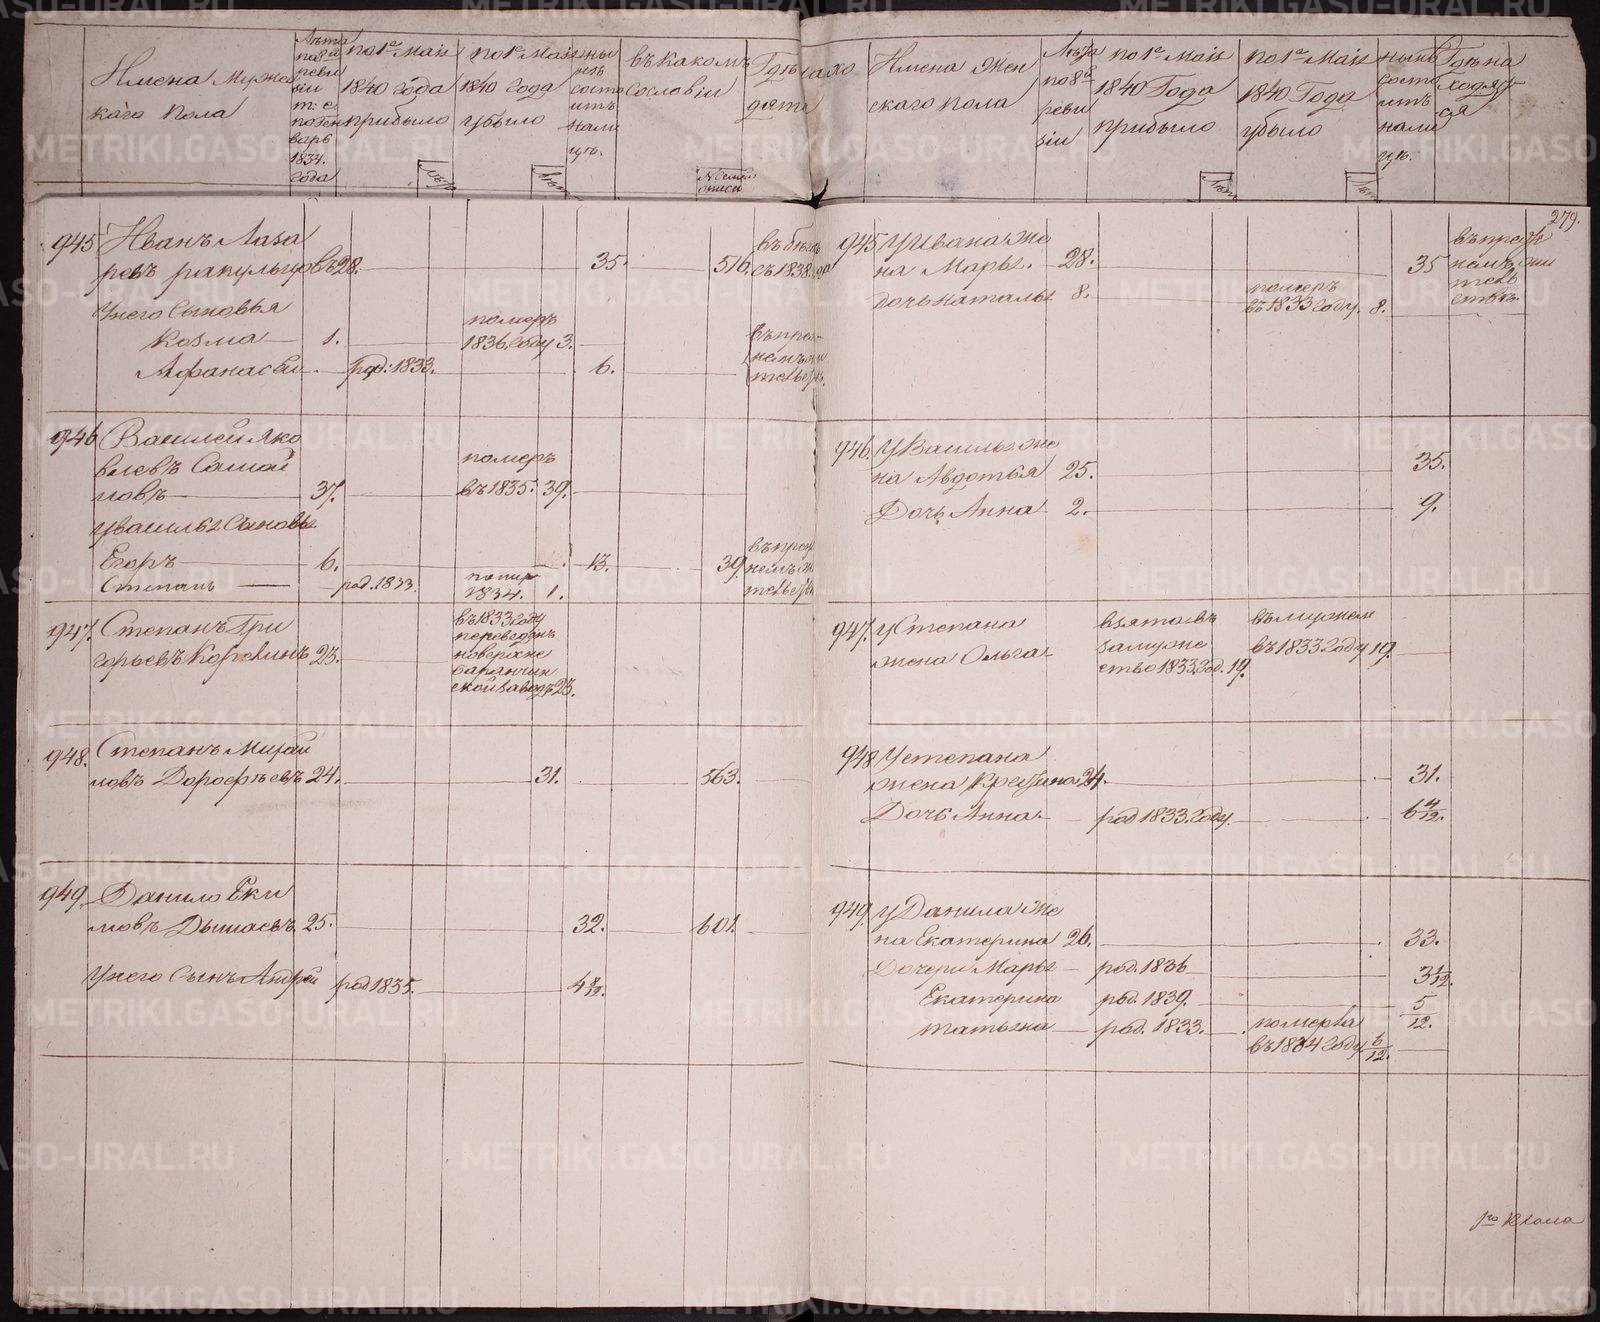 Имена Мужс
каго пола
Лѣта
по 8й
реви
зіи
т: е.
по Ген
варь
1834.
года
по 1е Маія
1840 года
прибыло
лѣт
по 1е Маія
1840 года
убыло
лѣт
ны
нѣ
сост
итъ
нали
цѣ.
въ какомъ
сословіи
Гдѣ нахо
дятся
Имена Жен
скаго пола
Лѣта
по 8й
реви
зіи
по 1е Маія
1840 Года
прибыло
лѣт
по 1е Маія
1840 Года
убыло
лѣт
нынѣ
состо
итъ
нали
цѣ.
Гдѣ на
ходят
ся
279.
945 Иванъ Лаза
ревъ ракульцовъ 28. 35. 516. въ бѣгахъ
съ 1838 года
У него Сыновья
Козма 1. померъ
1836 году 3.
Афанасей род: 1833. 6. въ преж
немъ жи
тельствѣ
945 У Ивана же
на Марья 28. 35 въ преж
немъ жи
тель
ствѣ.
дочь наталья 8. померъ
въ 1833 году. 8.
946 Василей Яко
влевъ Самой
ловъ 37. померъ
въ 1835. 39.
у василья Сыновья
Егоръ 6. 13. 39. въ преж
немъ жи
тельствѣ
Степанъ род. 1833. помир
1834. 1.
946. У Василья же
на Авдотья 25. 35.
Дочь Анна 2. 9.
947. Степанъ Гри
горьевъ Коровинъ 23. въ 1833 году
переведенъ
новерхне
баранчин
ской заводъ 23.
947. у Степана
жена Ольга взята въ
замуже
ство 1833 год. 19. съ мужем
въ 1833 году 19.
948. Степанъ Михай
ловъ Дорофѣевъ 24. 31. 563.
948 У степана
жена Крестина 24. 31.
Дочь Анна род 1833 году. 6 4/12.
949. Данило Еки
мовъ Дышаевъ 25. 32. 601.
У него Сынъ Андрей род 1835.
949. у Данила же
на Екатерина 26. 33.
Дочери Марья род. 1836
Екатерина род. 1839. 5/12.
татьяна род. 1833. померла
въ 1834 году 6/12.